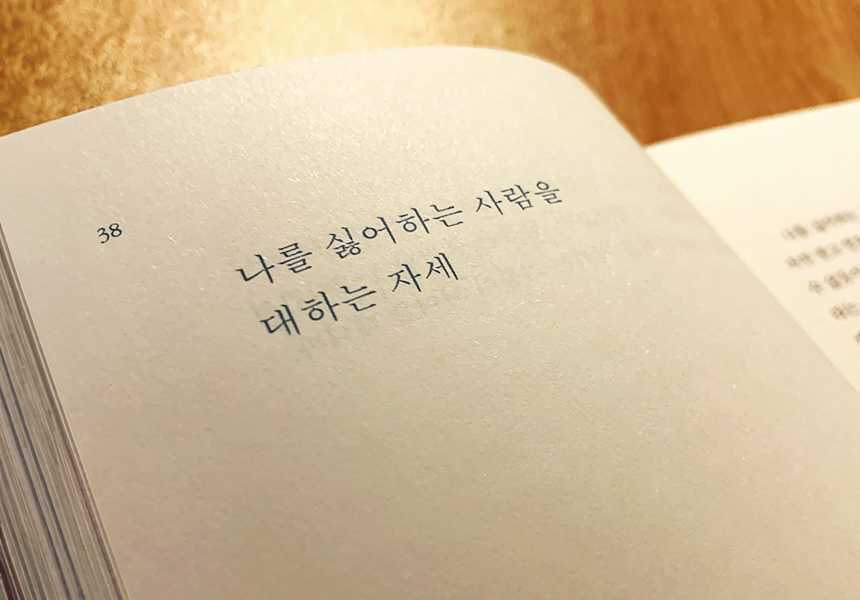 38
나를 싫어하는 사람을
대하는 자세